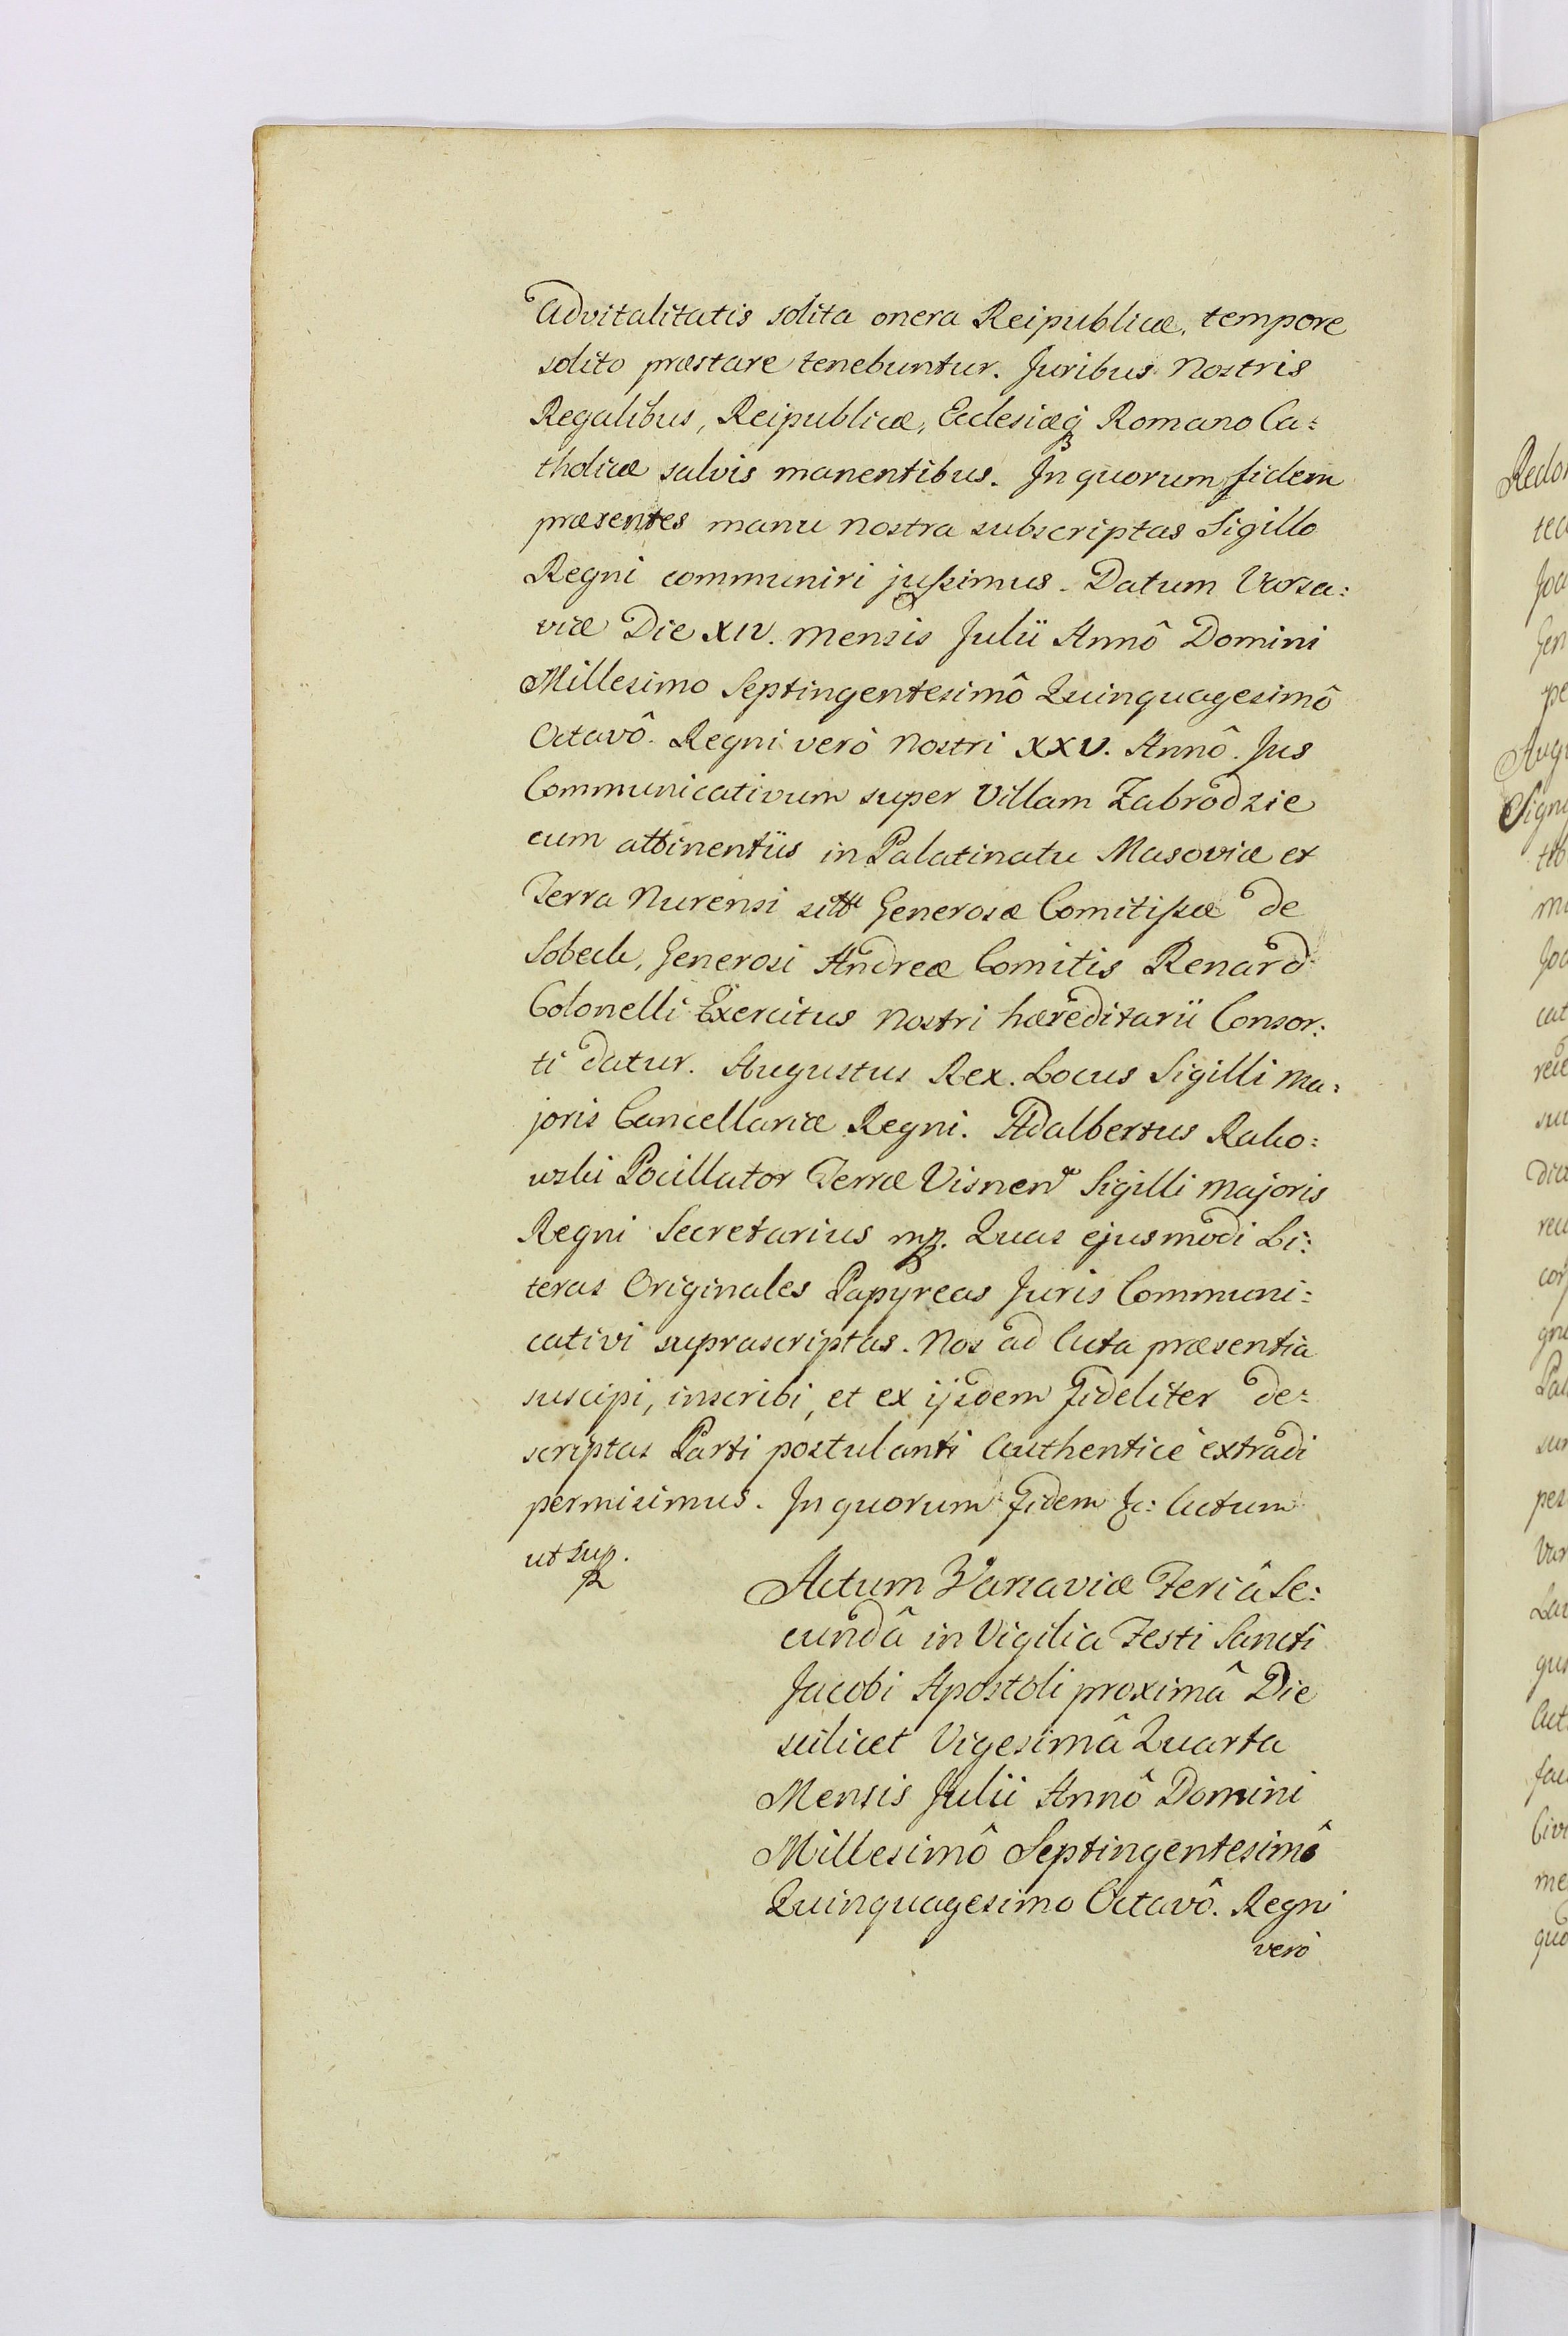 Advitalitatis solita onera Reipublicæ, tempore
solito præstare tenebuntur. Juribus Nostris
Regalibus, Reipublicæ, Ecclesiæq Romano Ca:
tholicæ salvis manentibus. In quorum fidem
præsentes manu nostra subscriptas Sigillo
Regni communiri jußimus. Datum Varsa:
viæ Die XIV. Mensis Julii Annô Domini
Millesimo Septingentesimô Quinquagesimô
Octavô. Regni verò Nostri XXV. Annô. Jus
Communicativum super Villam Zabrodzie
cum attinentiis in Palatinatu Masoviæ et
Terra Nurensi Generosæ Comitißæ de
Sobeck, Generosi Andreæ Comitis Renard
Colonelli Exercitus Nostri hæreditarii Consor:
ti datur. Augustus Rex. Locus Sigilli Ma:
joris Cancellariæ Regni. Adalbertus Rako:
wski Pocillator Terræ Visnen Sigilli Majoris
Regni Secretarius mp. Quas ejusmodi Li:
teras Originales Papyreas Juris Communi:
cativi suprascriptas. Nos ad Acta præsentia
suscipi, inscribi, et ex ijsdem fideliter de:
scriptas Parti postulanti Authenticè extradi
permisimus. In quorum Fidem &c: Actum
ut sup.
Actum Varsaviæ Feriâ Se:
cundâ in Vigilia Festi Sancti
Jacobi Apostoli proximâ Die
scilicet Vigesimâ Quarta
Mensis Julii Annô Domini
Millesimô Septingentesimô
Quinquagesimo Octavô. Regni
verò
Redo